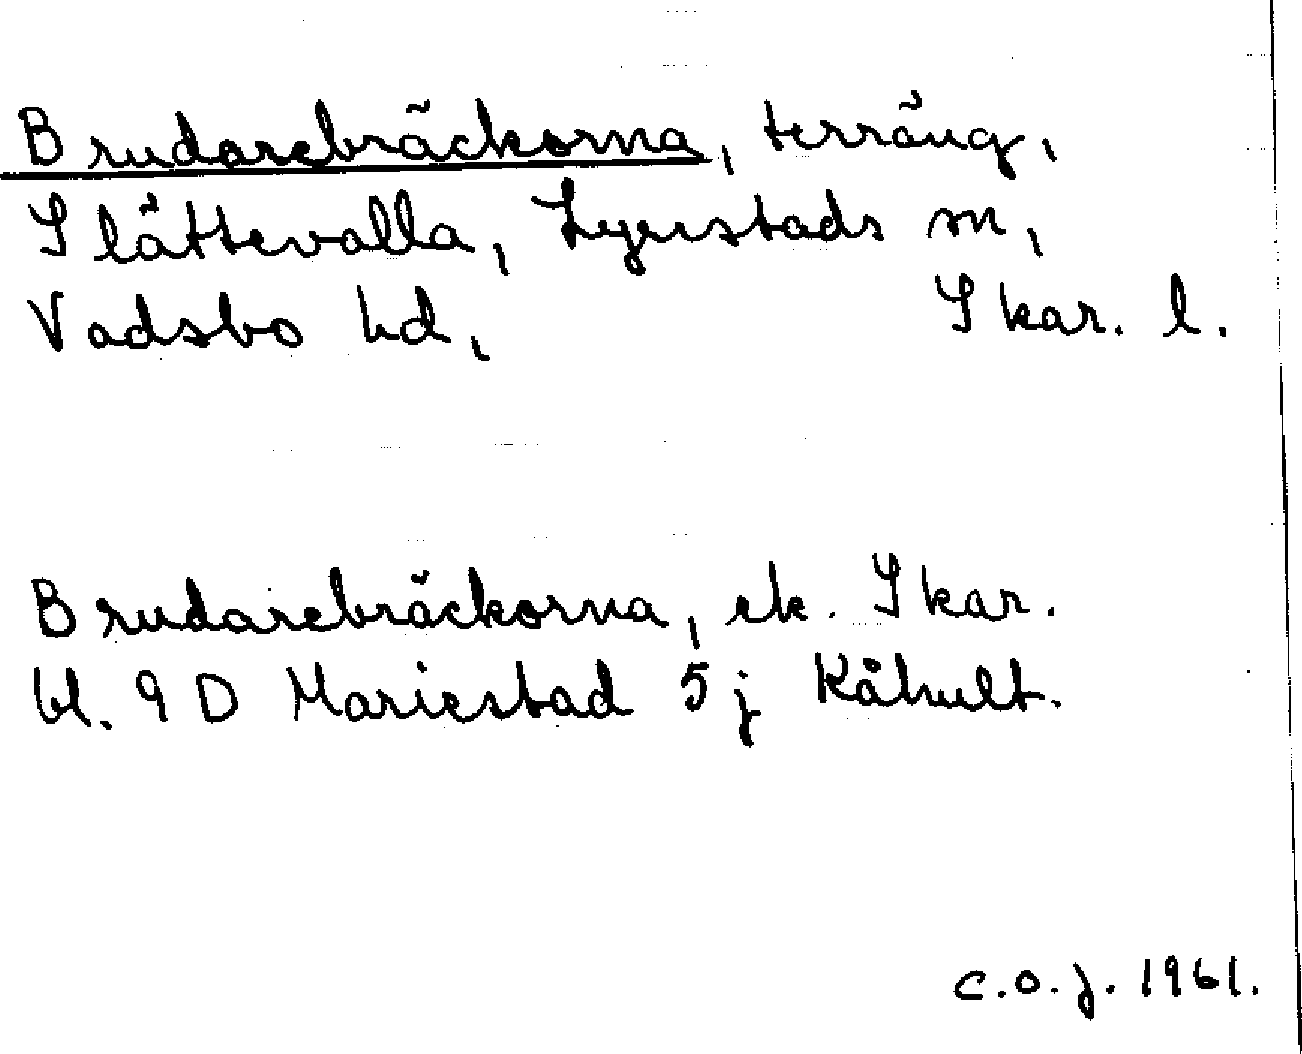 Brudarebräckorna, terräng,
Slättevalla, Lyrestads sn,
Vadsbo hd, Skar. l.
Brudarebräckorna, ek. Skar.
bl. 9 D Mariestad 5 j Kåhult.
C.O.J. 1961.